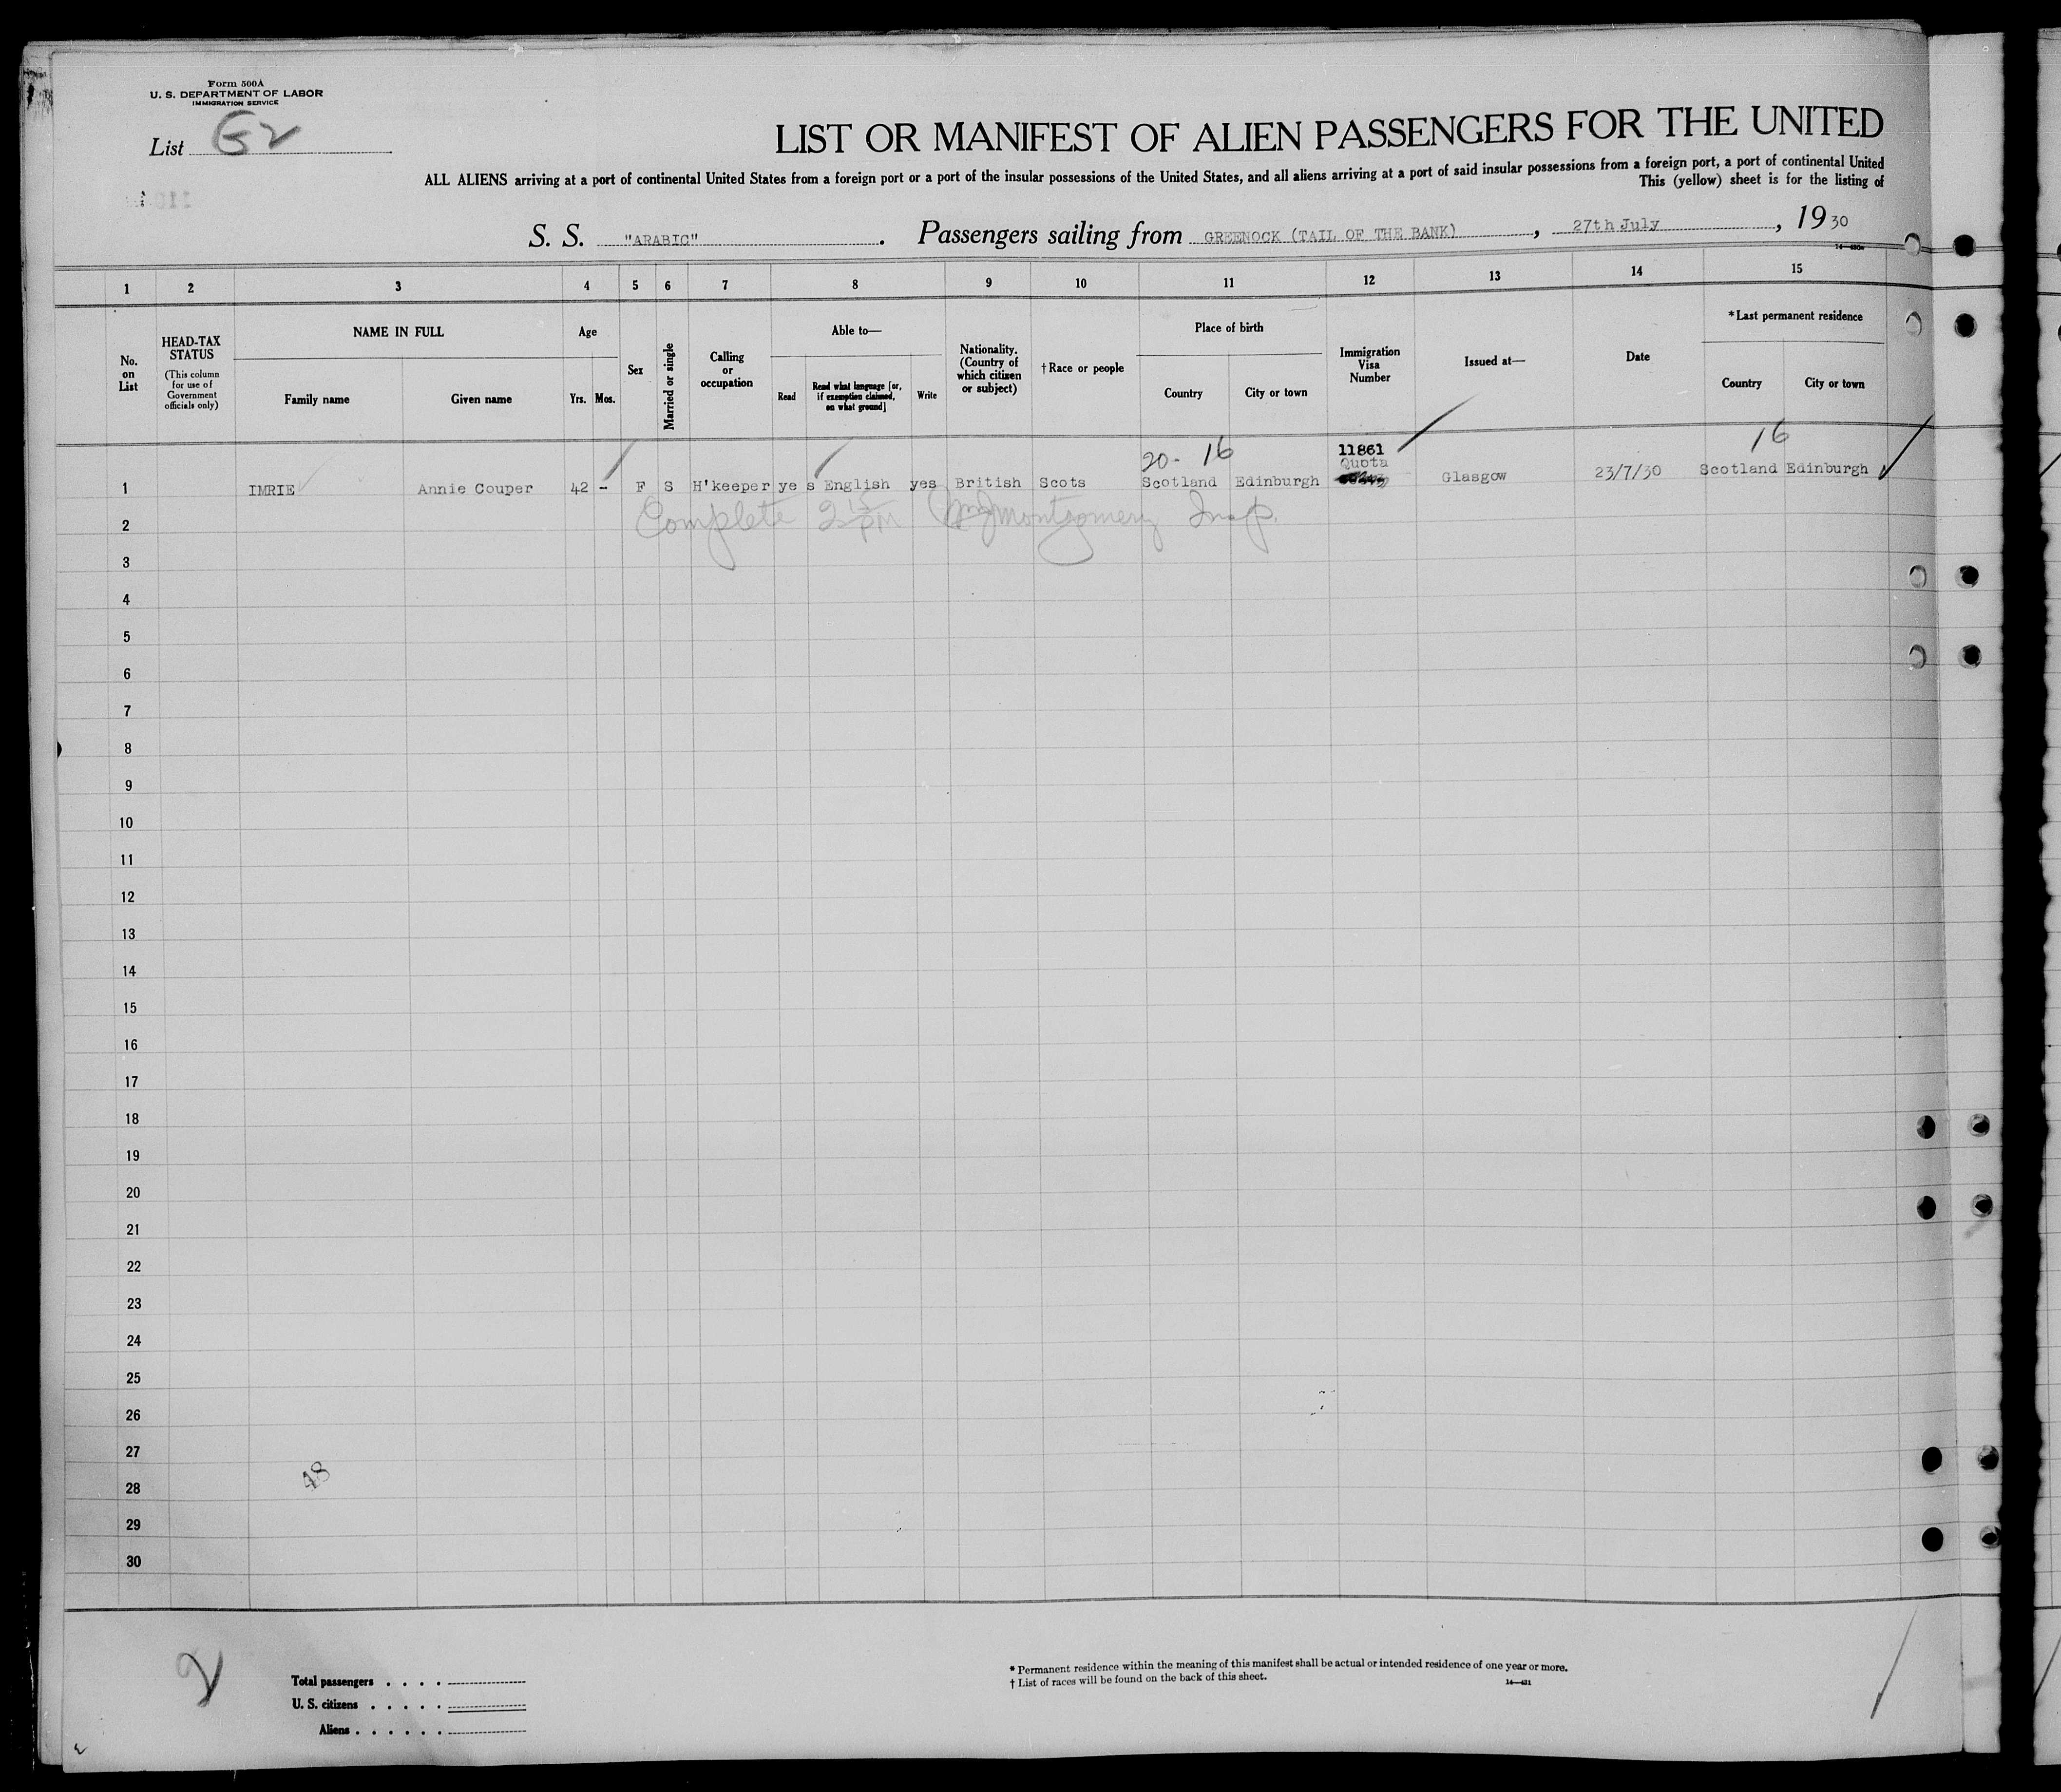 Form 500A
U. S. DEPARTMENT OF LABOR
IMMIGRATION SERVICE
List G2
LIST OR MANIFEST OF ALIEN PASSENGERS FOR THE UNITED
ALL ALIENS arriving at a port of continental United States from a foreign port or a port of the insular possessions of the United States, and all aliens arriving at a port of said insular possessions from a foreign port, a port of continental United
This (yellow) sheet is for the listing of
S. S. "ARABIC". Passengers sailing from GREENOCK (TAIL OF THE BANK), 27th July, 1930
1 2 3 4 5 6 7 8 9 10 11 12 13 14 15
No. on List
HEAD-TAX STATUS
(This column for use of Government officials only)
NAME IN FULL
Family name Given name
Age
Yrs. Mos.
Sex
Married or single
Calling or occupation
Able to—
Read
Read what language [or, if exemption claimed, on what ground]
Write
Nationality. (Country of which citizen or subject)
†Race or people
Place of birth
Country City or town
Immigration Visa Number
Issued at—
Date
*Last permanent residence
Country City or town
20- 16 11861 16
Quota
1 IMRIE Annie Couper 42 - F S H'keeper ye s English yes British Scots Scotland Edinburgh Glasgow 23/7/30 Scotland Edinburgh
Complete 2 15 PM Montgomery Insp.
2
3
4
5
6
7
8
9
10
11
12
13
14
15
16
17
18
19
20
21
22
23
24
25
26
27
48
28
29
30
2
Total passengers . . . .
U. S. citizens . . . . .
Aliens . . . . . .
* Permanent residence within the meaning of this manifest shall be actual or intended residence of one year or more.
† List of races will be found on the back of this sheet.